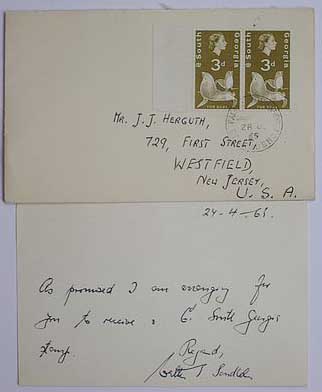 South Georgia
3d
FUR SEAL
South Georgia
3d
FUR SEAL
Mr. J. J. HERGUTH,
729, FIRST STREET,
WESTFIELD,
NEW JERSEY,
U. S. A.
24-4-65.
As promised I am arranging for
you to receive a S. Georgia
stamp.
Regards,